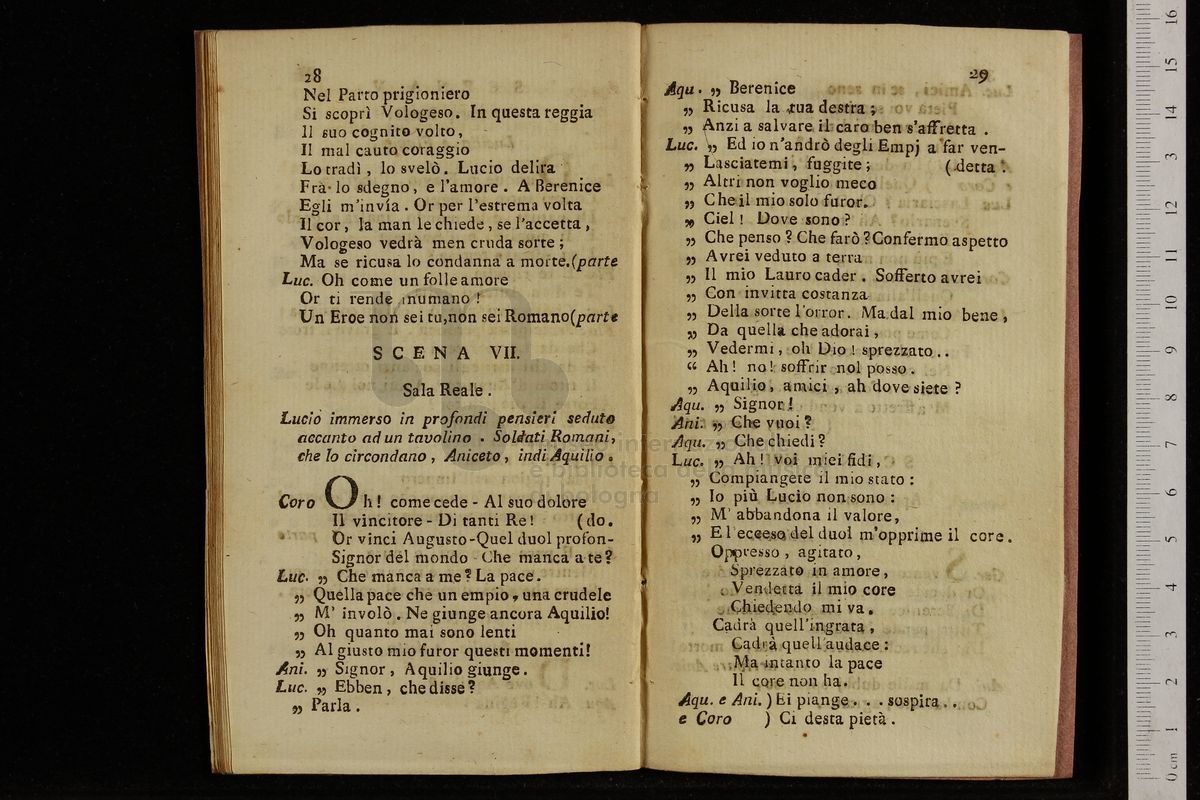 28
Nel Parto prigioniero
Si scoprì Vologeso. In questa reggia
Il suo cognito volto,
Il mal cauto coraggio
Lo tradì, lo svelò. Lucio delira
Frà lo sdegno, e l'amore. A Berenice
Egli m'invìa. Or per l'estrema volta
Il cor, la man le chiede, se l'accetta,
Vologeso vedrà men cruda sorte;
Ma se ricusa lo condanna a morte.(parte
Luc. Oh come un folle amore
Or ti rende inumano!
Un Eroe non sei tu,non sei Romano(parte
SCENA VII.
Sala Reale.
Lucio immerso in profondi pensieri seduto
accanto ad un tavolino. Soldati Romani,
che lo circondano, Aniceto, indi Aquilio.
Coro Oh! come cede - Al suo dolore
Il vincitore - Di tanti Re! (do.
Or vinci Augusto-Quel duol profon-
Signor del mondo - Che manca a te?
Luc. „ Che manca a me? La pace.
„ Quella pace che un empio, una crudele
„ M' involò. Ne giunge ancora Aquilio!
„ Oh quanto mai sono lenti
„ Al giusto mio furor questi momenti!
Ani. „ Signor, Aquilio giunge.
Luc. „ Ebben, che disse?
„ Parla.
29
Aqu. „ Berenice
„ Ricusa la tua destra;
„ Anzi a salvare il caro ben s'affretta.
Luc. „ Ed io n'andrò degli Empj a far ven-
„ Lasciatemi, fuggite; (detta.
„ Altri non voglio meco
„ Che il mio solo furor.
„ Ciel! Dove sono?
„ Che penso? Che farò? Con fermo aspetto
„ Avrei veduto a terra
„ Il mio Lauro cader. Sofferto avrei
„ Con invitta costanza
„ Della sorte l'orror. Ma dal mio bene,
„ Da quella che adorai,
„ Vedermi, oh Dio! sprezzato..
“ Ah! no! soffrir nol posso.
„ Aquilio, amici, ah dove siete?
Aqu. „ Signor!
Ani. „ Che vuoi?
Aqu. „ Che chiedi?
Luc. „ Ah! voi miei fidi,
„ Compiangete il mio stato:
„ Io più Lucio non sono:
„ M' abbandona il valore,
„ E l'eccesso del duol m'opprime il core.
Oppresso, agitato,
Sprezzato in amore,
Vendetta il mio core
Chiedendo mi va.
Cadrà quell'ingrata,
Cadrà quell'audace:
Ma intanto la pace
Il core non ha.
Aqu. e Ani.) Ei piange... sospira..
e Coro ) Ci desta pietà.
museo internazionale
e biblioteca della musica
bologna
0 cm 1 2 3 4 5 6 7 8 9 10 11 12 13 14 15 16